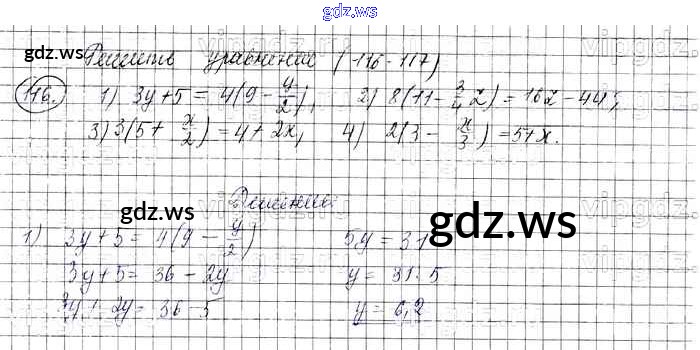 gdz.ws
Решить уравнения (116-117)
116. 1) 3y+5 = 4(9 - y/2), 2) 8(11 - 3/4 z) = 16z - 44;
3) 3(5 + x/2) = 4 + 2x, 4) 2(3 - x/3) = 5 + x.
1) 3y + 5 = 4(9 - y/2) 5y = 31
3y + 5 = 36 - 2y y = 31:5
3y + 2y = 36 - 5 y = 6,2
gdz.ws
gdz.ws
gdz.ws
gdz.ws